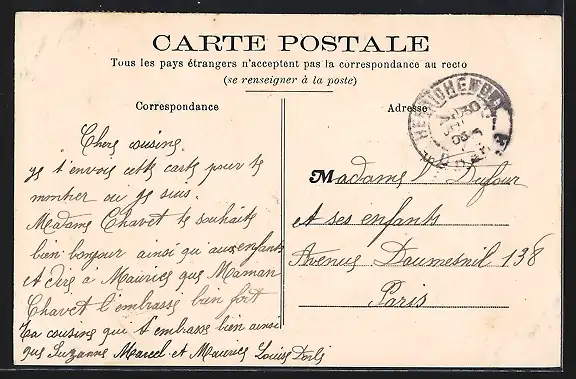 CARTE POSTALE
Tous les pays étrangers n'acceptent pas la correspondance au recto
(se renseigner à la poste)
Correspondance
Adresse
Chere cousine
je t'envois cette carte pour te
montrer ou je suis.
Madame Chavet te souhaite
bien bonjour ainsi qu'aux enfants
et dire à Maurice que Maman
Chavet l'embrasse bien fort
Ta cousine qui t'embrasse bien ainsi
que Suzanne Marcel et Maurice Louise
Madame Dufour
et ses enfants
Avenue Daumesnil 138
Paris